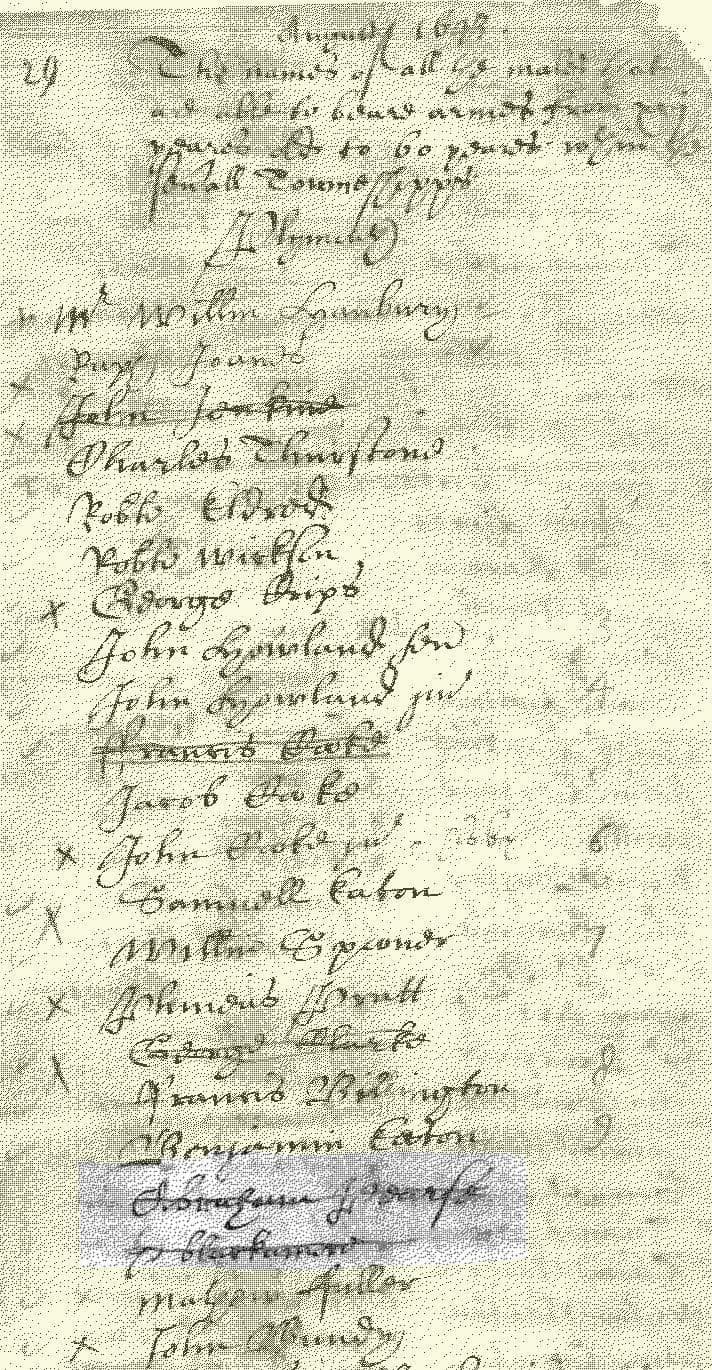 August 1643
29
The names of all the males that
are able to beare armes from xvj
yeares old to 60 yeares wthin the
seuall Towneshipps
Plymouth
Mr Willm Hanbury
John Jenkins
Charles Thurstone
Robte Eldred
Robte Wickson
George Crips
John Howland sen
John Howland jun
Francis Cooke
Jacob Cooke
John Cooke jun
Samuell Eaton
Willm Spooner
Phineas Pratt
George Clarke
Francis Billington
Benjamin Eaton
Abraham Pearse
blackamore
Mathew Fuller
John Bundy